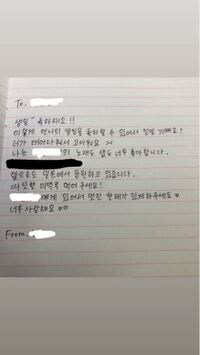 To.
생일 축하해요!!
이렇게 언니의 생일을 축하할 수 있어서 정말 기뻐요!
너가 태어나줘서 고마워요
나는 의 노래도 랩도 너무 좋아합니다.
앞으로도 일본에서 응원하고 있습니다.
따뜻한 미역국 먹어 주세요!
에게 있어서 멋진 한 해가 있게하주세요
너무 사랑해요 ♡♡
From.